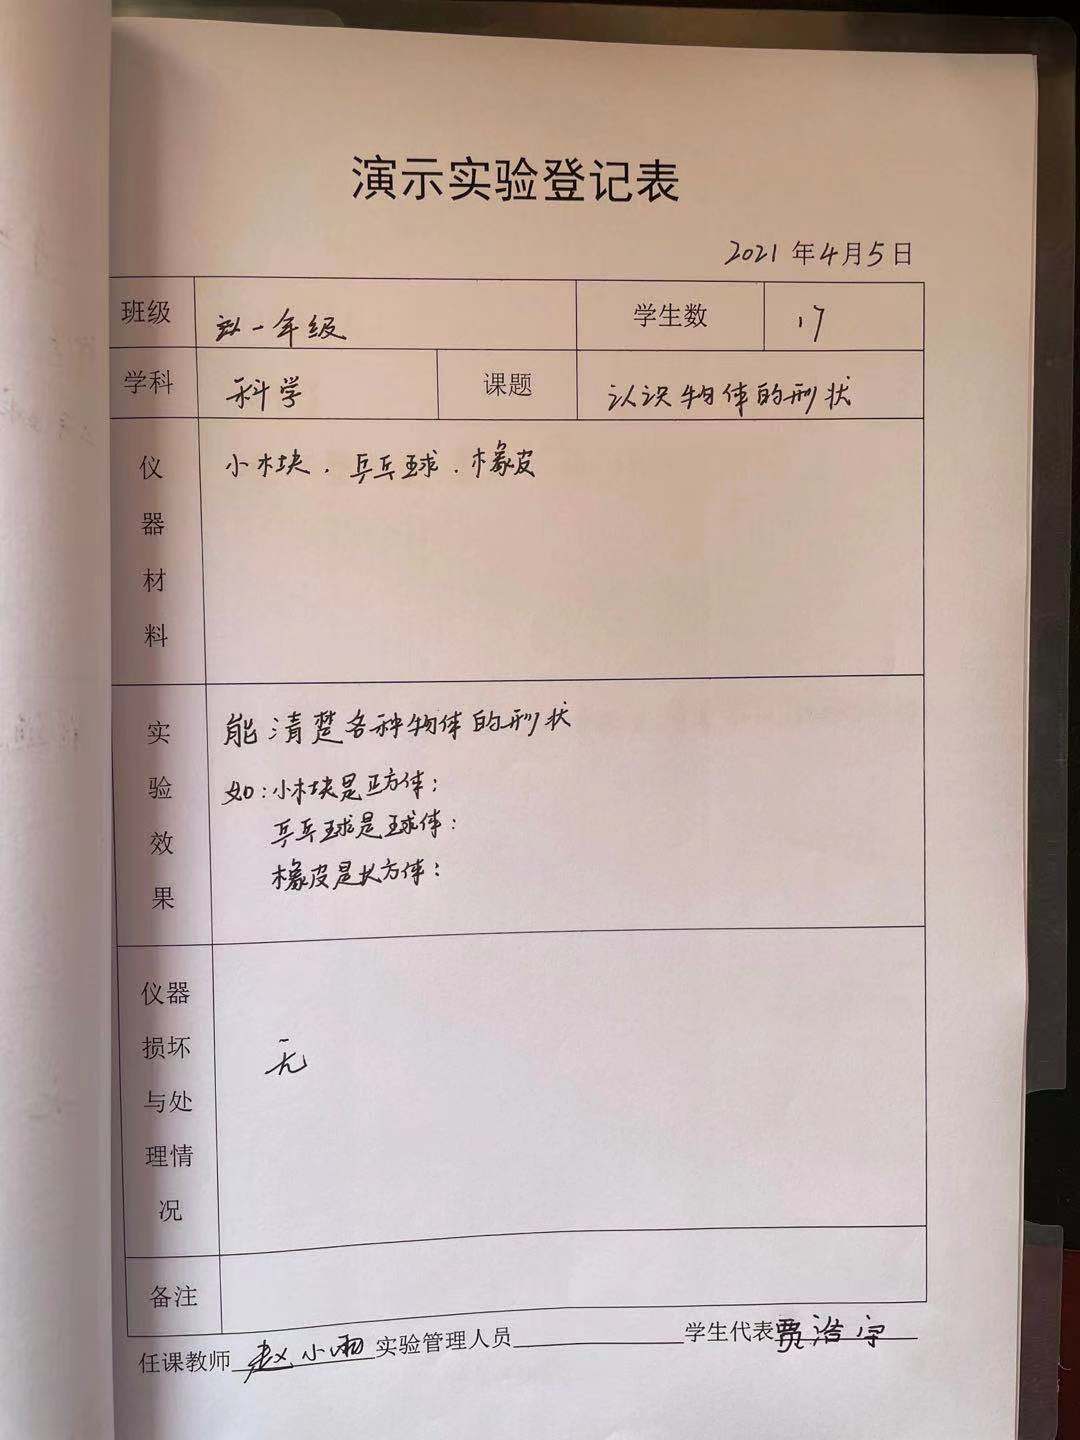 演示实验登记表
2021年4月5日
班级 一年级 学生数 17
学科 科学 课题 认识物体的形状
仪器材料 小木块、乒乓球、橡皮
实验效果 能清楚各种物体的形状
如:小木块是正方体;
乒乓球是球体;
橡皮是长方体;
仪器损坏与处理情况 无
备注
任课教师 赵小雨 实验管理人员 学生代表 贾浩宇